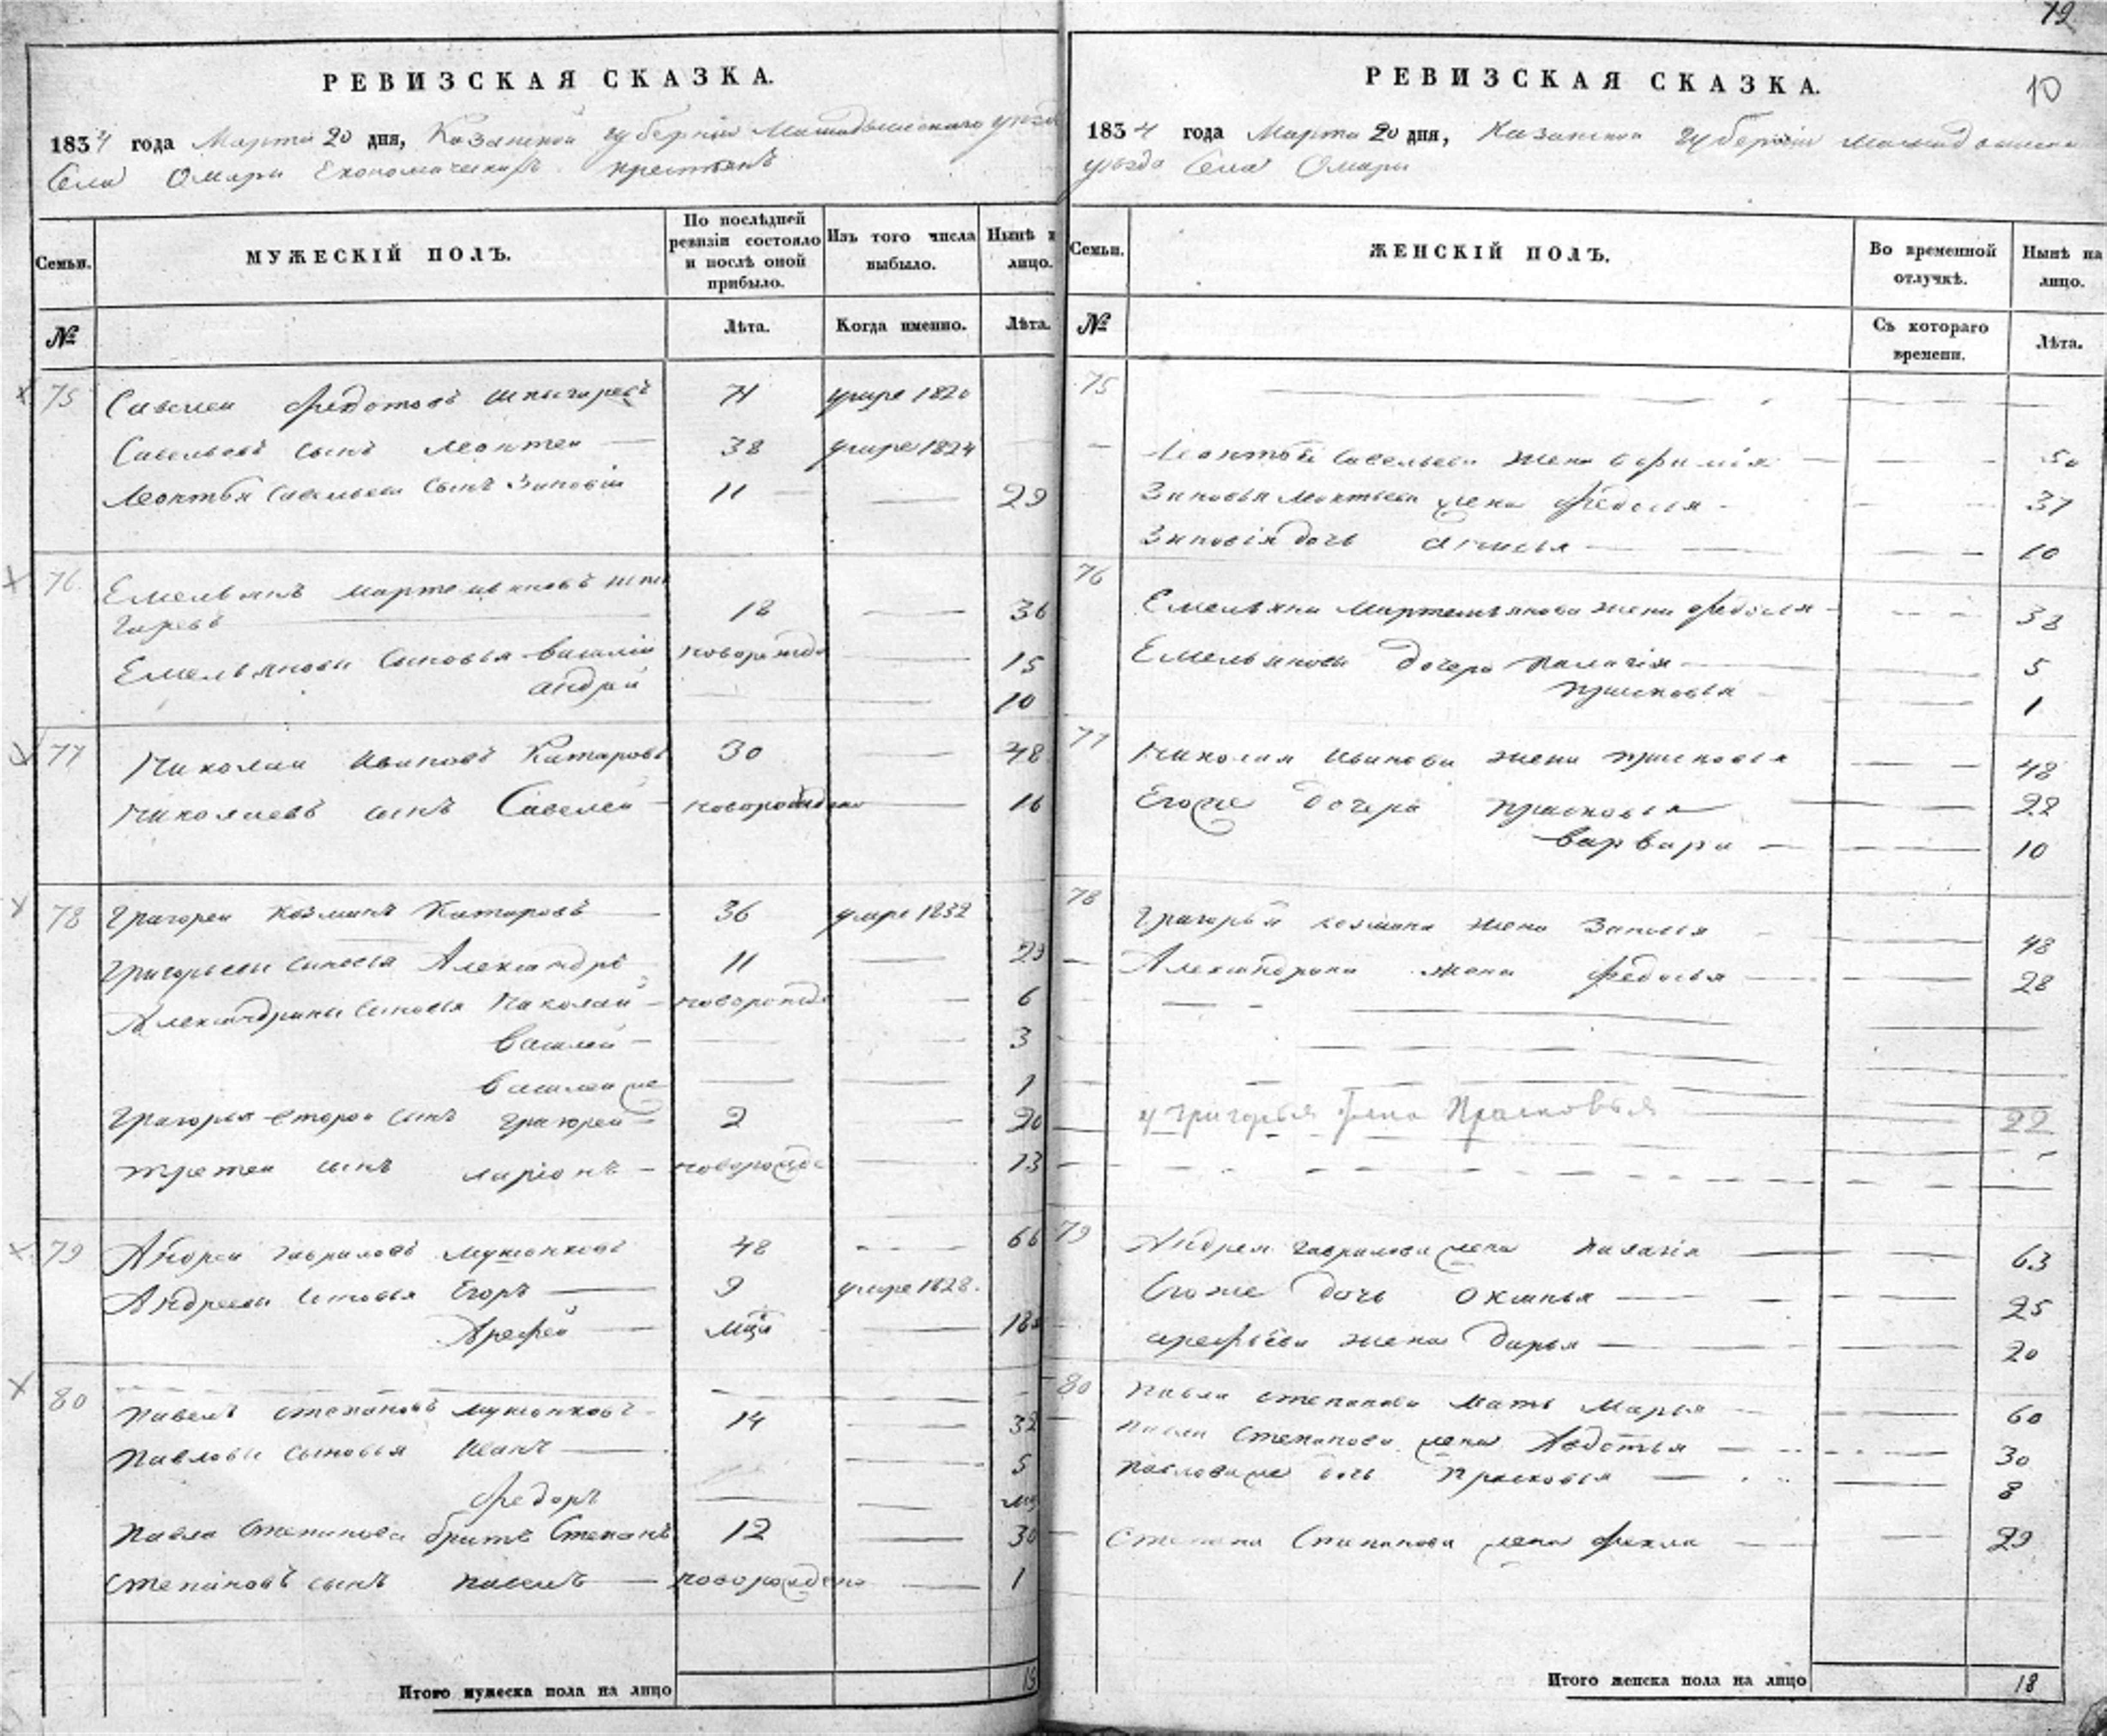 РЕВИЗСКАЯ СКАЗКА.
1834 года Марта 20 дня, Казанской губернии Мамадышскаго уезда
Села Омари Економическихъ крестьянъ
Семьи.
МУЖЕСКІЙ ПОЛЪ.
По послѣдней ревизіи состояло и послѣ оной прибыло.
Изъ того числа выбыло.
Нынѣ на лицо.
№
Лѣта.
Когда именно.
Лѣта.
75 Савелеи Федотовъ 71 умре 1820
Савельевъ сынъ Леонтеи 38 умре 1824
Леонтья Савельева сынъ Зиновіи 11 29
76 Емельянъ Мартемьяновъ
18 36
Емельяновы сыновья Василіи новорожде 15
Андреи 10
77 Николаи Ивановъ Катаровъ 30 48
Николаевъ сынъ Савелеи новорожденъ 16
78 Григореи Козминъ Катаровъ 36 умре 1832
Григорьевы сыновья Александръ 11 29
Александровы сыновья Николаи новорожде 6
Василеи 3
Василеи же 1
Григорья второи сынъ Григореи 2 20
третеи сынъ Ларіонъ новорожде 13
79 Андреи Гавриловъ Мушонковъ 48 66
Андреевы сыновья Егоръ 9 умре 1828.
Арефеи 18
80 Павелъ Степановъ Мушонковъ 14 32
Павловы сыновья Иванъ 5
Федоръ
Павла Степанова братъ Степанъ 12 30
Степановъ сынъ Павелъ новорожденъ 1
Итого мужеска пола на лицо 19
12
10
РЕВИЗСКАЯ СКАЗКА.
1834 года Марта 20 дня, Казанской губерніи
уезда Села Омари
Семьи.
ЖЕНСКІЙ ПОЛЪ.
Во временной отлучкѣ.
Нынѣ на лицо.
№
Съ котораго времени.
Лѣта.
75
Леонтья Савельева жена 50
Зиновья Леонтьева жена Федосья 37
Зиновія дочь 10
76
Емельяна Мартемьянова жена Федосья 38
Емельяновы дочери Палагія 5
Прасковья 1
77 Николая Иванова жена Прасковья 48
Егоже дочери Прасковья 22
Варвара 10
78
Григорья Козмина жена 48
Александрова жена Федосья 28
у Григорья жена Прасковья 22
79 Андрея Гаврилова жена Палагія 63
Егоже дочь Оксинья 25
Арефьева жена Дарья 20
80 Павла Степанова мать Марья 60
Павла Степанова жена Авдотья 30
Павлова же дочь Прасковья 8
Степана Степанова жена Фекла 29
Итого женска пола на лицо 18